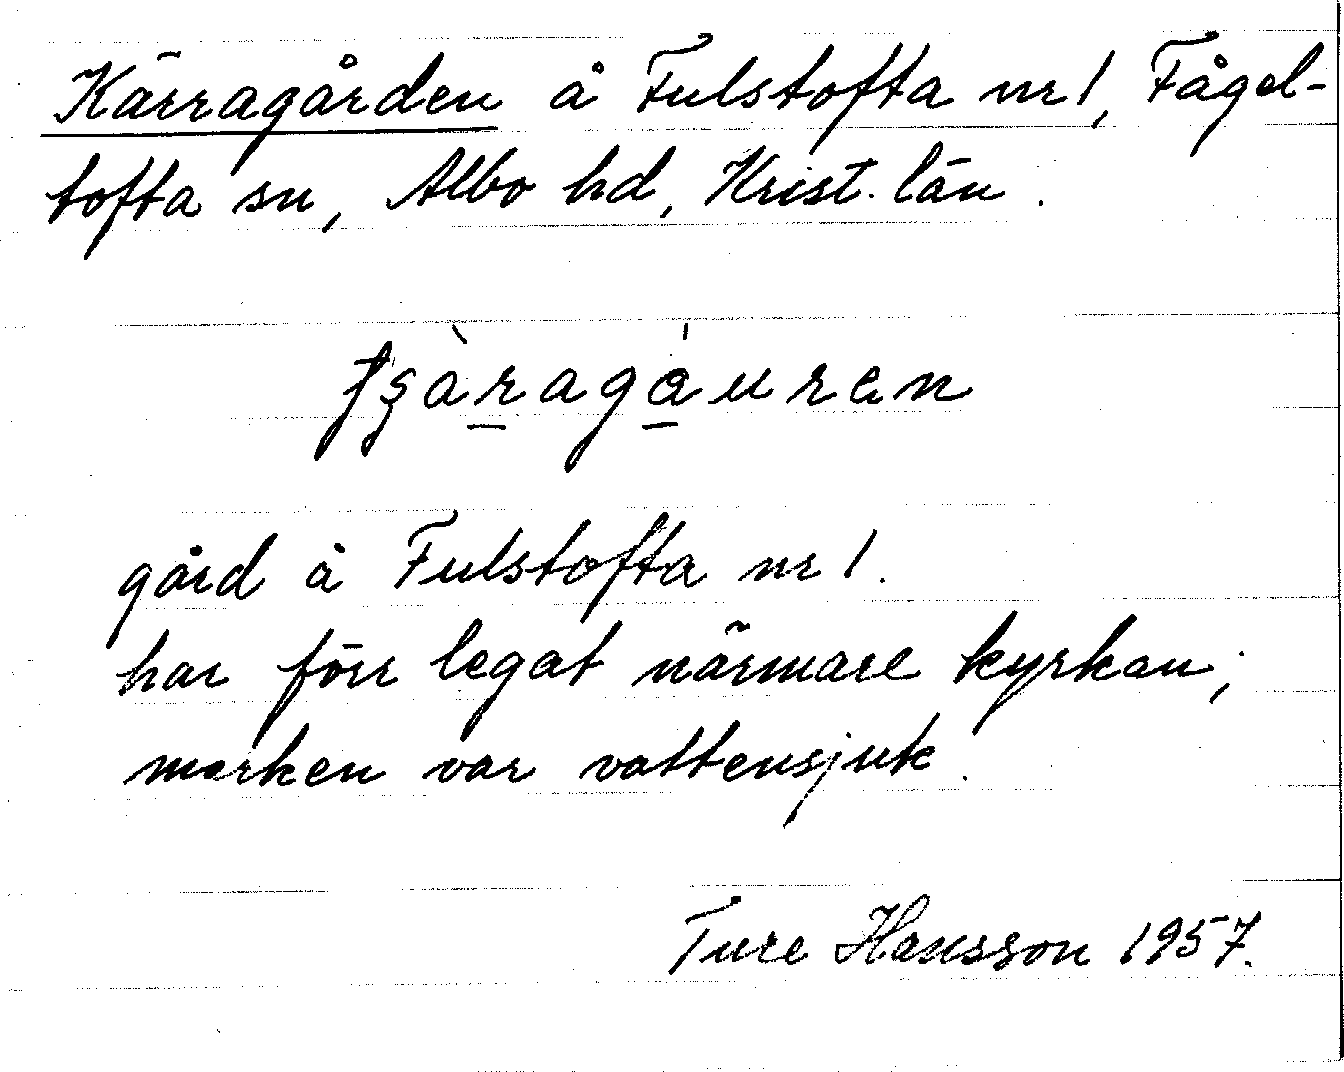 Kärragården å Fulstofta nr 1, Fågel-
tofta sn, Albo hd, Krist. län.
gård å Fulstofta nr 1.
har förr legat närmare kyrkan;
marken var vattensjuk.
Ture Hansson 1957.